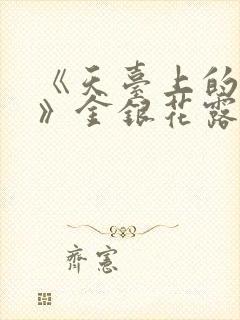 《天臺上的
》金銀花露
齊憲